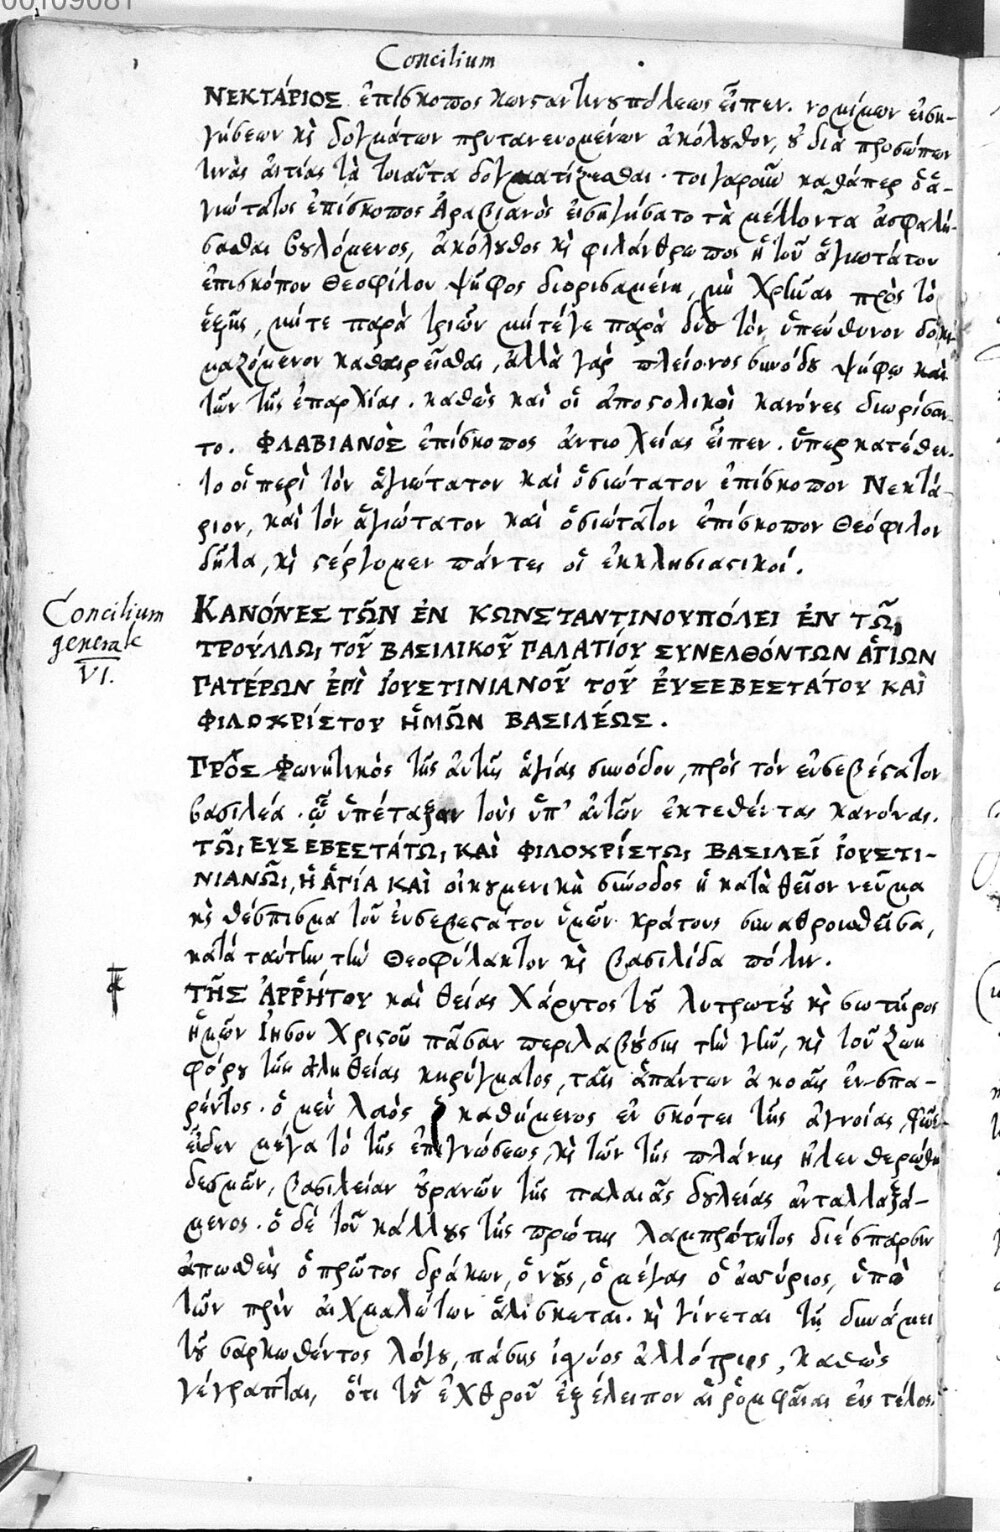 00109081
Concilium
ΝΕΚΤΆΡΙΟΣ ἐπίσκοπος κωνσταντινουπόλεως εἶπεν. νομίμων εἰση-
γήσεων κὶ δογμάτων πρυτανευομένων ἀκόλουθον, οὐ διὰ προσώπων
τινὰς αἰτίας τὰ τοιαῦτα δογματίζεσθαι. τοιγαροῦν καθάπερ ὁ ἁ-
γιώτατος ἐπίσκοπος Ἀραβιανὸς εἰσηγήσατο τὰ μέλλοντα ἀσφαλί-
σασθαι βουλόμενος, ἀκόλουθος κὶ φιλάνθρωπος ἡ τοῦ ἁγιωτάτου
ἐπισκόπου Θεοφίλου ψῆφος διορισαμένη, μὴ χρῆναι πρὸς τὸ
ἑξῆς, μήτε παρὰ τριῶν μήτέγε παρὰ δύο τὸν ὑπεύθυνον δοκι-
μαζόμενον καθαιρεῖσθαι, ἀλλὰ γὰρ πλείονος συνόδου ψήφῳ καὶ
τῶν τῆς ἐπαρχίας. καθὼς καὶ οἱ ἀποστολικοὶ κανόνες διωρίσαν-
το. ΦΛΑΒΙΑΝῸΣ ἐπίσκοπος ἀντιοχείας εἶπεν. ὕπερ κατέθεν-
το οἱ περὶ τὸν ἁγιώτατον καὶ ὁσιώτατον ἐπίσκοπον Νεκτά-
ριον, καὶ τὸν ἁγιώτατον καὶ ὁσιώτατον ἐπίσκοπον Θεόφιλον
δῆλα, κὶ στέργομεν πάντες οἱ ἐκκλησιαστικοί.
Concilium
generale
VI.
ΚΑΝΌΝΕΣ ΤΩ͂Ν ἘΝ ΚΩΝΣΤΑΝΤΙΝΟΥΠΌΛΕΙ ἘΝ ΤΩ͂ι
ΤΡΟΎΛΛΩι ΤΟΥ͂ ΒΑΣΙΛΙΚΟΥ͂ ΠΑΛΑΤΊΟΥ ΣΥΝΕΛΘΌΝΤΩΝ ἉΓΊΩΝ
ΠΑΤΈΡΩΝ ἘΠῚ ἸΟΥΣΤΙΝΙΑΝΟΥ͂ ΤΟΥ͂ ἘΥΣΕΒΕΣΤΆΤΟΥ ΚΑῚ
ΦΙΛΟΧΡΊΣΤΟΥ ἩΜΩ͂Ν ΒΑΣΙΛΈΩΣ.
ΠΡΟΣ Φωνητικὸς τῆς ἀυτῆς ἁγίας συνόδου, πρὸς τὸν εὐσεβέστατον
βασιλέα. ᾧ ὑπέταξαν τοὺς ὑπ' ἀυτῶν ἐκτεθέντας κανόνας.
ΤΩ͂ι ΕΥΣΕΒΕΣΤΆΤΩι ΚΑῚ ΦΙΛΟΧΡΊΣΤΩι ΒΑΣΙΛΕΙ͂ ἸΟΥΣΤΙ-
ΝΙΑΝΩ͂ι, Ἡ ἉΓΊΑ ΚΑῚ οἰκουμενικὴ σύνοδος ἡ κατὰ θεῖον νεῦμα
κὶ θέσπισμα τοῦ ἐυσεβεστάτου ὑμῶν κράτους συναθροισθεῖσα,
κατὰ ταύτην τὴν Θεοφύλακτον κὶ βασιλίδα πόλιν.
ΤΗ͂Σ ἈΡΡΉΤΟΥ καὶ θείας χάριτος τοῦ λυτρωτοῦ κὶ σωτῆρος
ἡμῶν Ἰησοῦ Χριστοῦ πᾶσαν περιλαβούσης τὴν γῆν, κὶ τοῦ ζωη
φόρου τῆς ἀληθείας κηρύγματος, ταῖς ἁπάντων ἀκοαῖς ἐν-σπα-
ρέντος. ὁ μὲν λαὸς ὁ καθήμενος ἐν σκότει τῆς ἀγνοίας, φῶς-
εἶδεν μέγα τὸ τῆς ἐπιγνώσεως, κὶ τῶν τῆς πλάνης ἠλευθερώθη
δεσμῶν, βασιλείαν οὐρανῶν τῆς παλαιᾶς δουλείας ἀνταλλαξά-
μενος. ὁ δὲ τοῦ κάλλους τῆς πρώτης λαμπρότητος
ἀπωσθεὶς ὁ πρῶτος δράκων, ὁ νοῦς, ὁ μέγας ὁ ἀσσύριος, ὑπὸ
τῶν πρὶν αἰχμαλώτων ἁλίσκεται. κὶ γίνεται τῇ δυνάμει
τοῦ σαρκωθέντος λόγου, πάσης ἰσχύος ἀλλότριος, καθὼς
γέγραπται, ὅτι τοῦ ἐχθροῦ ἐξέλειπον αἱ ῥομφαῖαι εἰς τέλος.